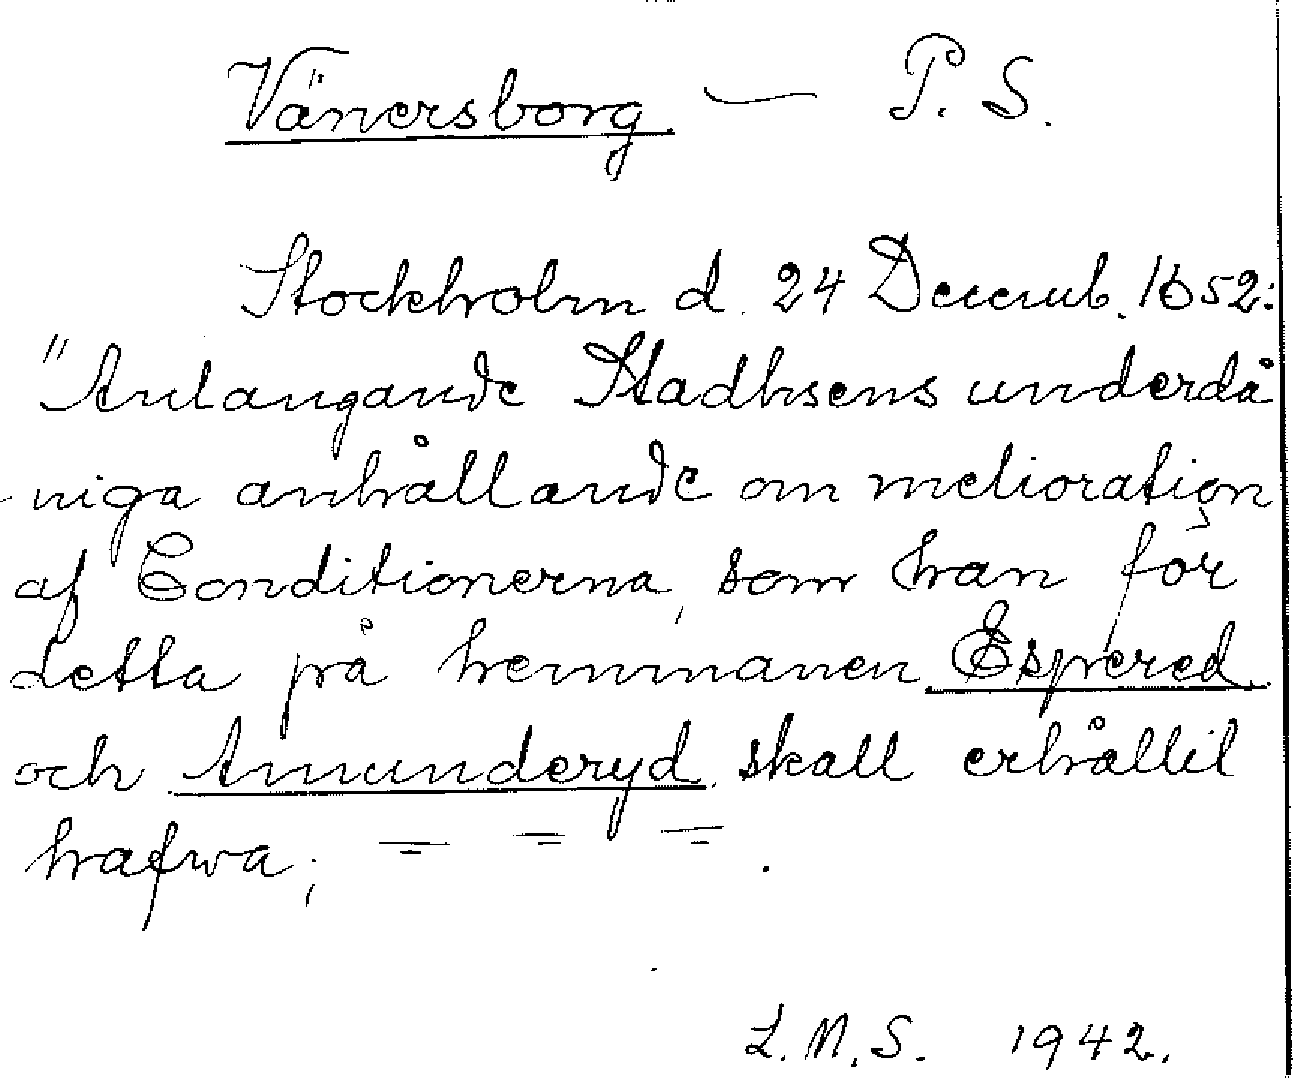 Vänersborg — P. S.
Stockholm d. 24 Decemb. 1652:
"Anlangande Stadhsens underdå
-niga anhållande om melioration
af Conditionerna, som han för
detta på hemmanen Espered
och Amunderyd skall erhållit
hafwa; = = = .
L. M. S. 1942.